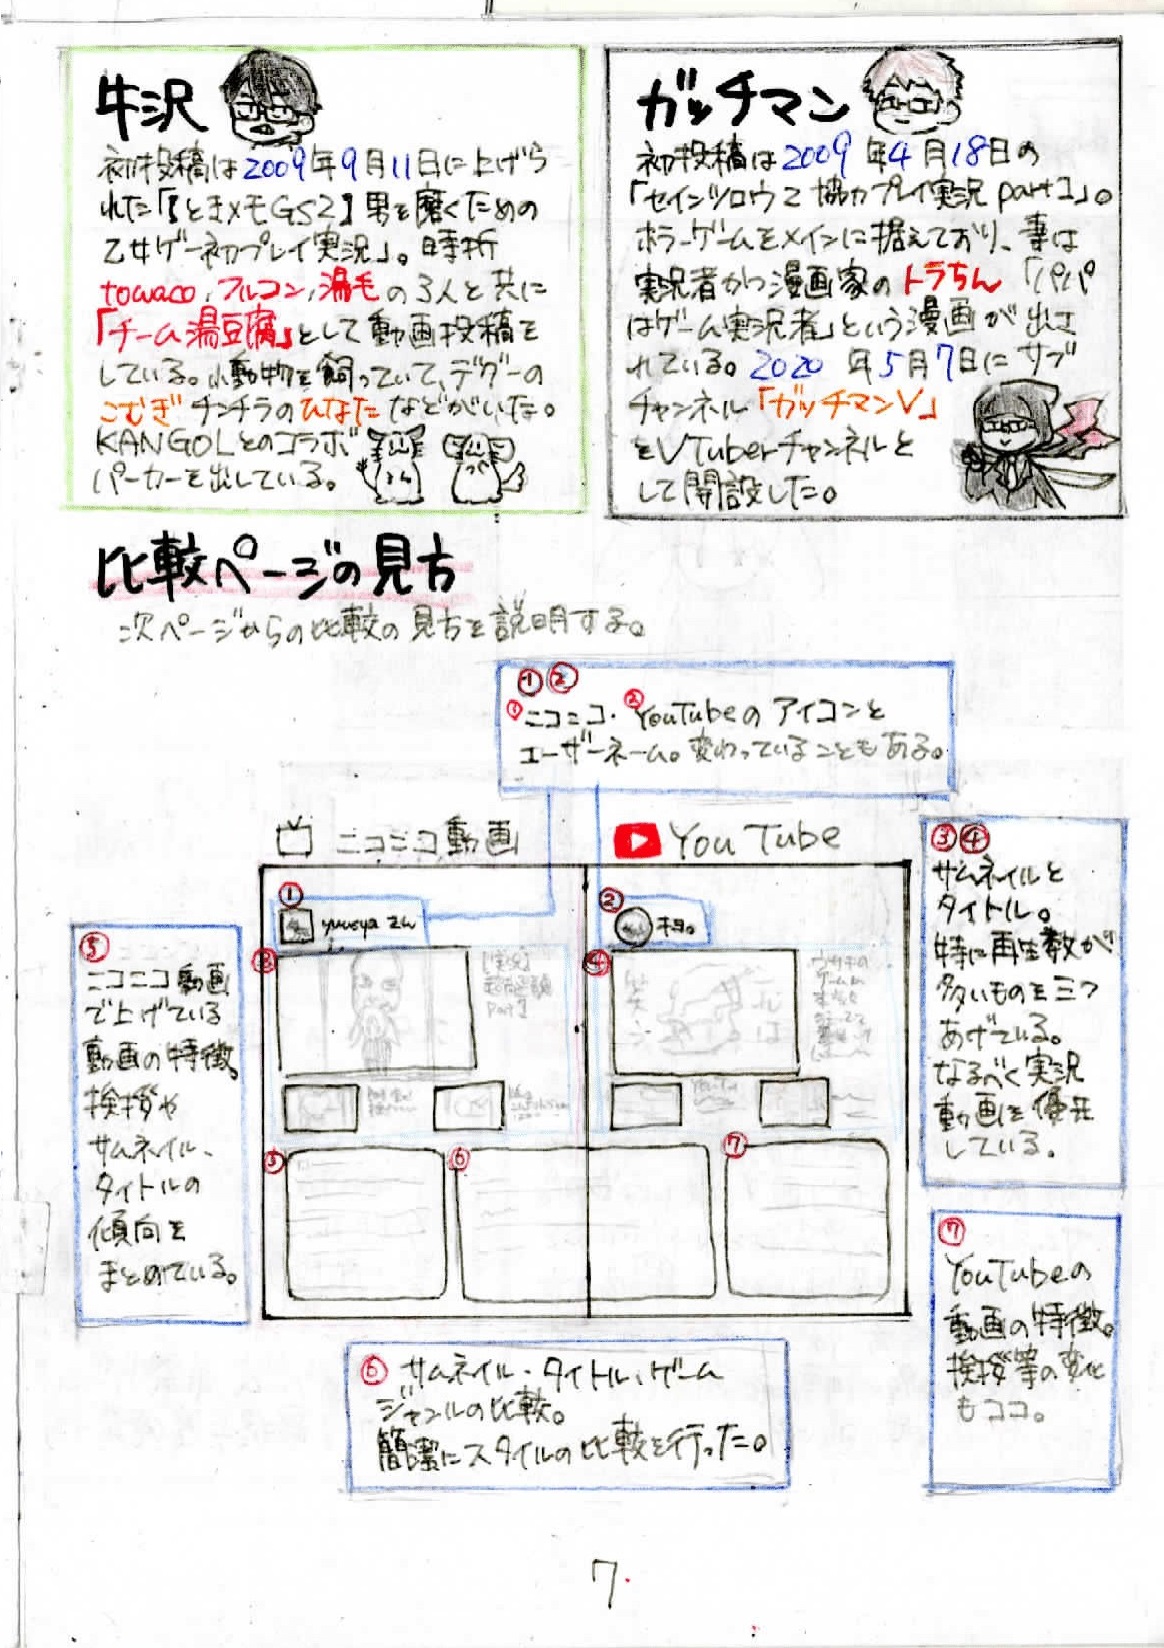 牛沢
初投稿は2009年9月11日に上げら
れた「【ときメモGS2】男を磨くための
乙女ゲー初プレイ実況」。時折
towaco、フルコン、湯毛の3人と共に
「チーム湯豆腐」として動画投稿を
している。小動物を飼っていて、デグーの
こむぎ チンチラのひなたなどがいた。
KANGOLとのコラボ
パーカーを出している。
ガッチマン
初投稿は2009年4月18日の
「セインツロウ2 協力プレイ実況 part1」。
ホラーゲームをメインに据えており、妻は
実況者かつ漫画家のトラちん「パパ
はゲーム実況者」という漫画が出さ
れている。2020年5月7日にサブ
チャンネル「ガッチマンV」
をVTuberチャンネルと
して開設した。
比較ページの見方
次ページからの比較の見方を説明する。
①②
①ニコニコ・②YouTubeのアイコンと
ユーザーネーム。変わっていることもある。
ニコニコ動画
YouTube
①
②
③
④
[実況]
part1
⑤
⑥
⑦
③④
サムネイルと
タイトル。
特に再生数が
多いものを三つ
あげている。
なるべく実況
動画を優先
している。
⑤
ニコニコ動画
で上げている
動画の特徴。
挨拶や
サムネイル、
タイトルの
傾向を
まとめている。
⑥ サムネイル・タイトル、ゲーム
ジャンルの比較。
簡潔にスタイルの比較を行った。
⑦
YouTubeの
動画の特徴。
挨拶等の変化
もココ。
7